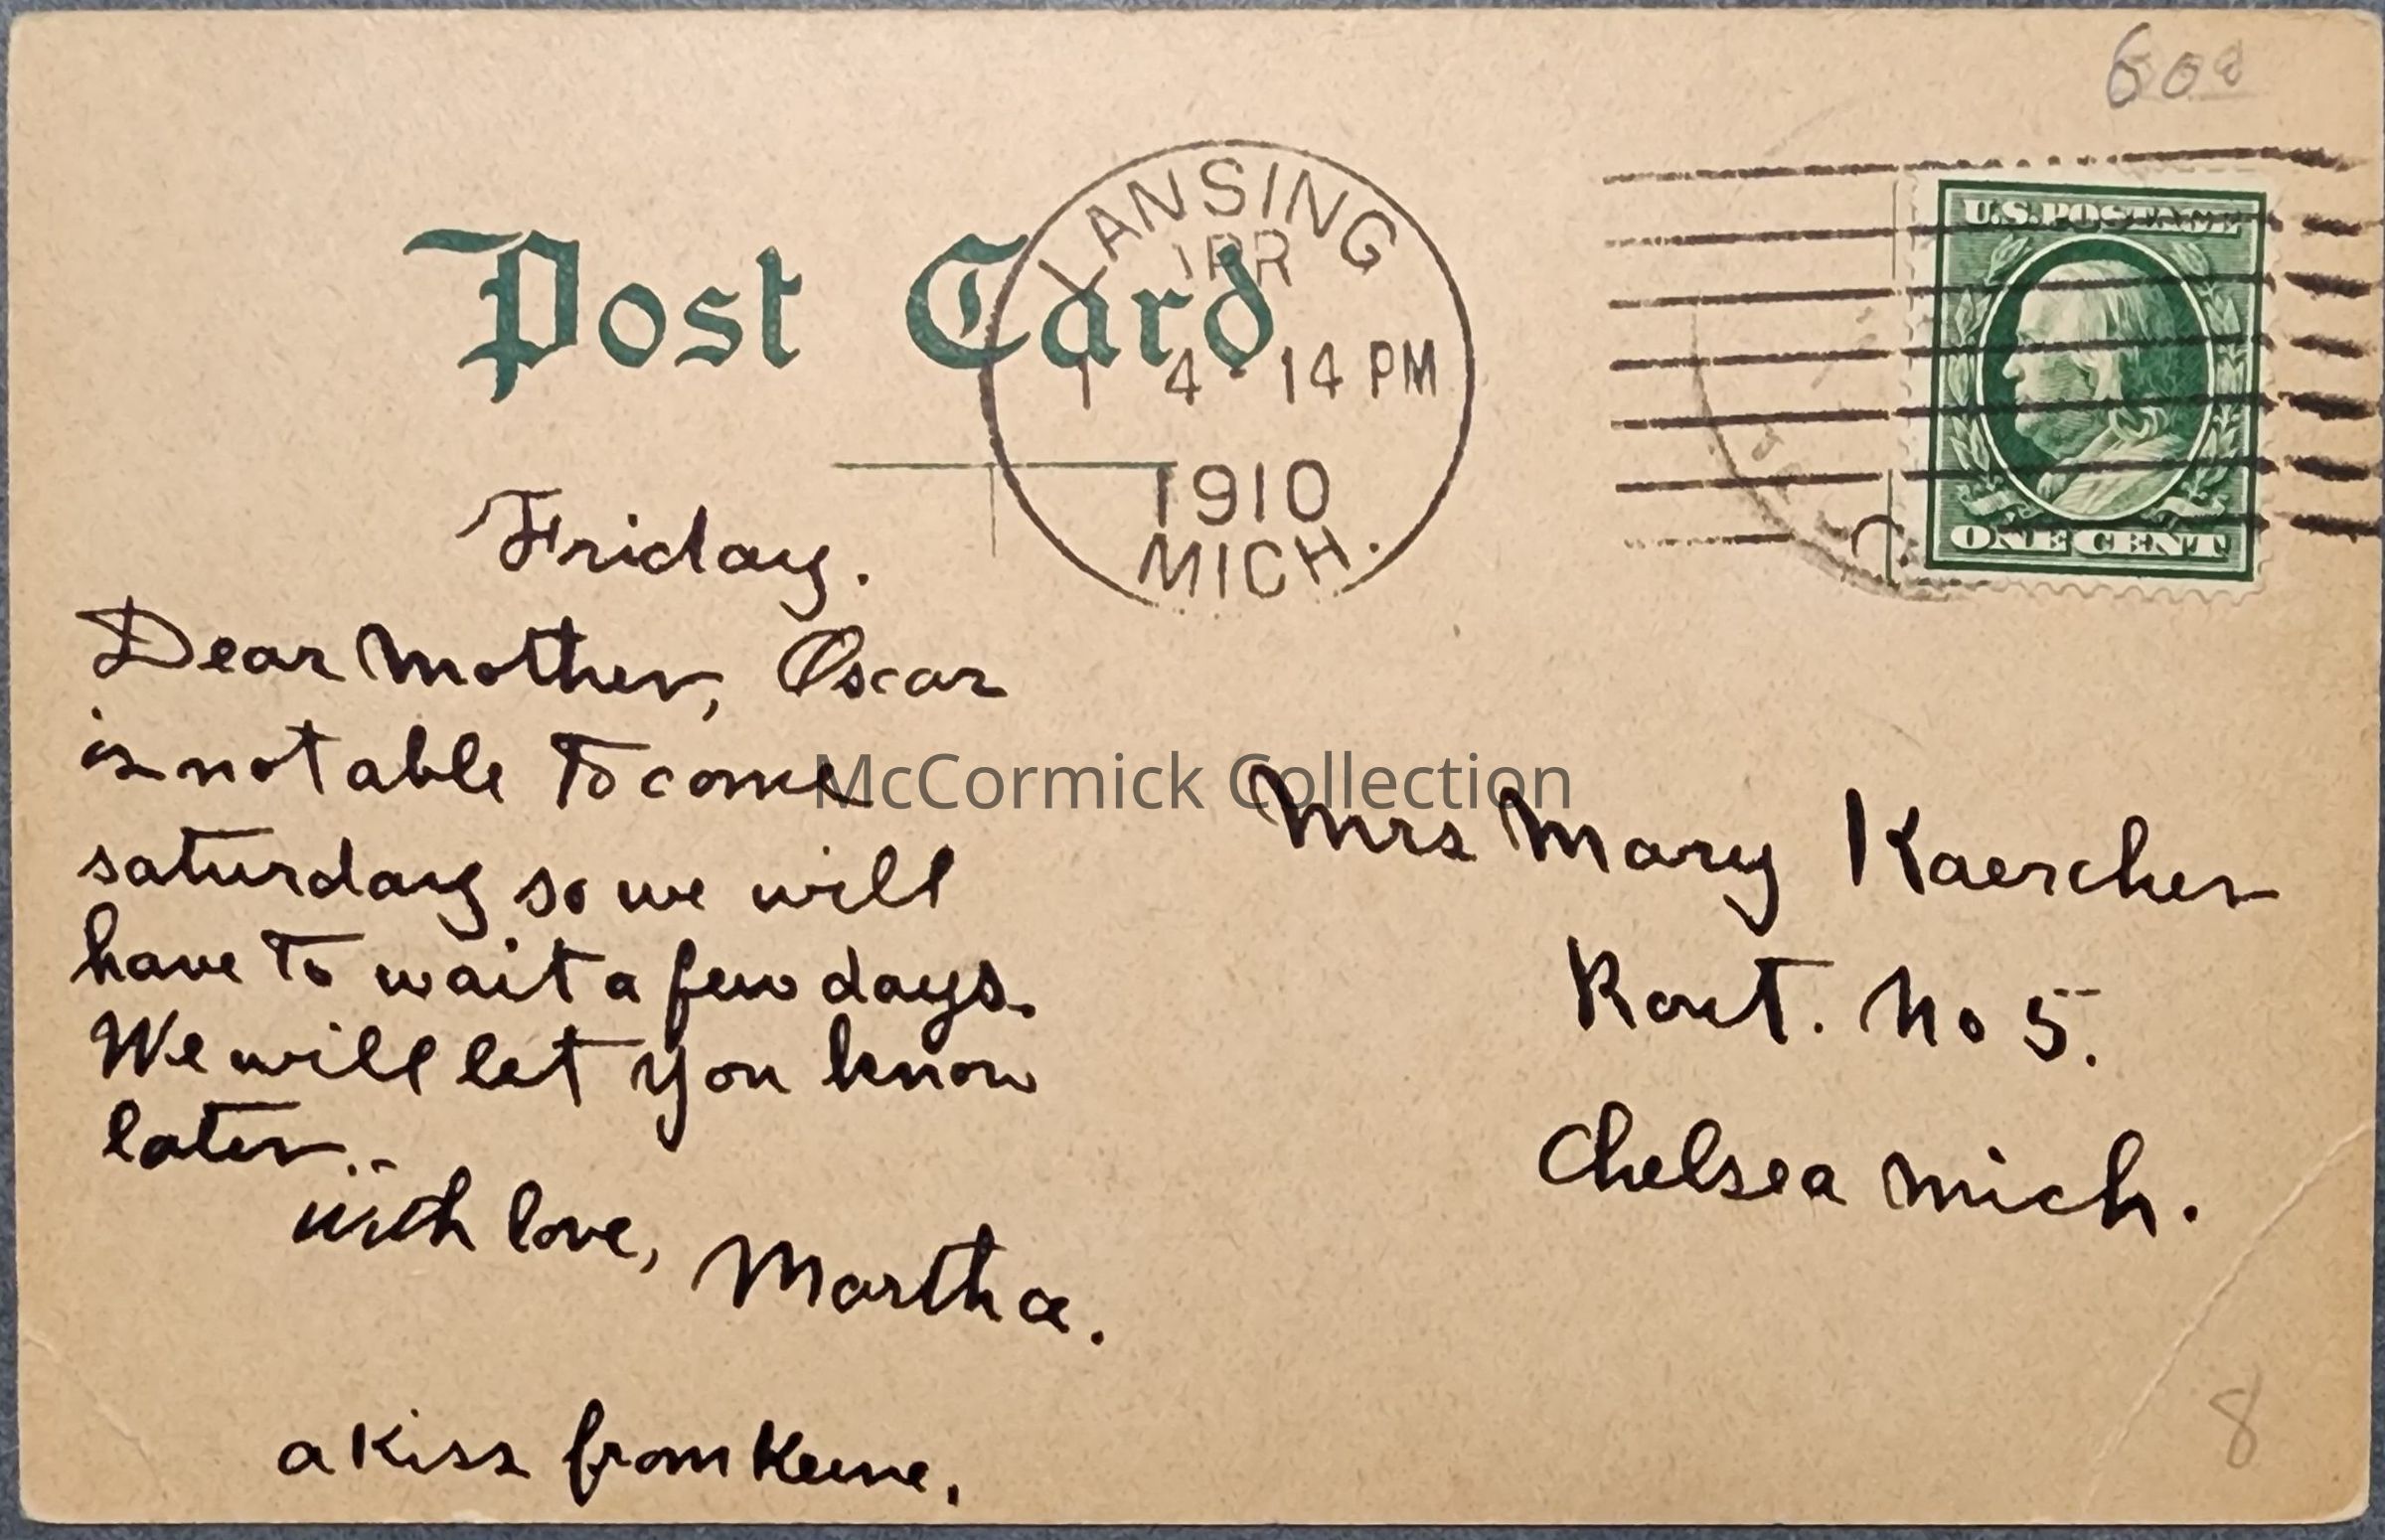 600
LANSING
APR
Post Card
1 4-14 PM
1910
MICH.
U.S. POSTAGE
ONE CENT
Friday.
Dear Mother, Oscar
is not able to come
saturday so we will
have to wait a few days.
We will let you know
later.
with love, Martha.
a kiss from
McCormick Collection
Mrs Mary Kaercher
Rout. No 5.
Chelsea Mich.
8